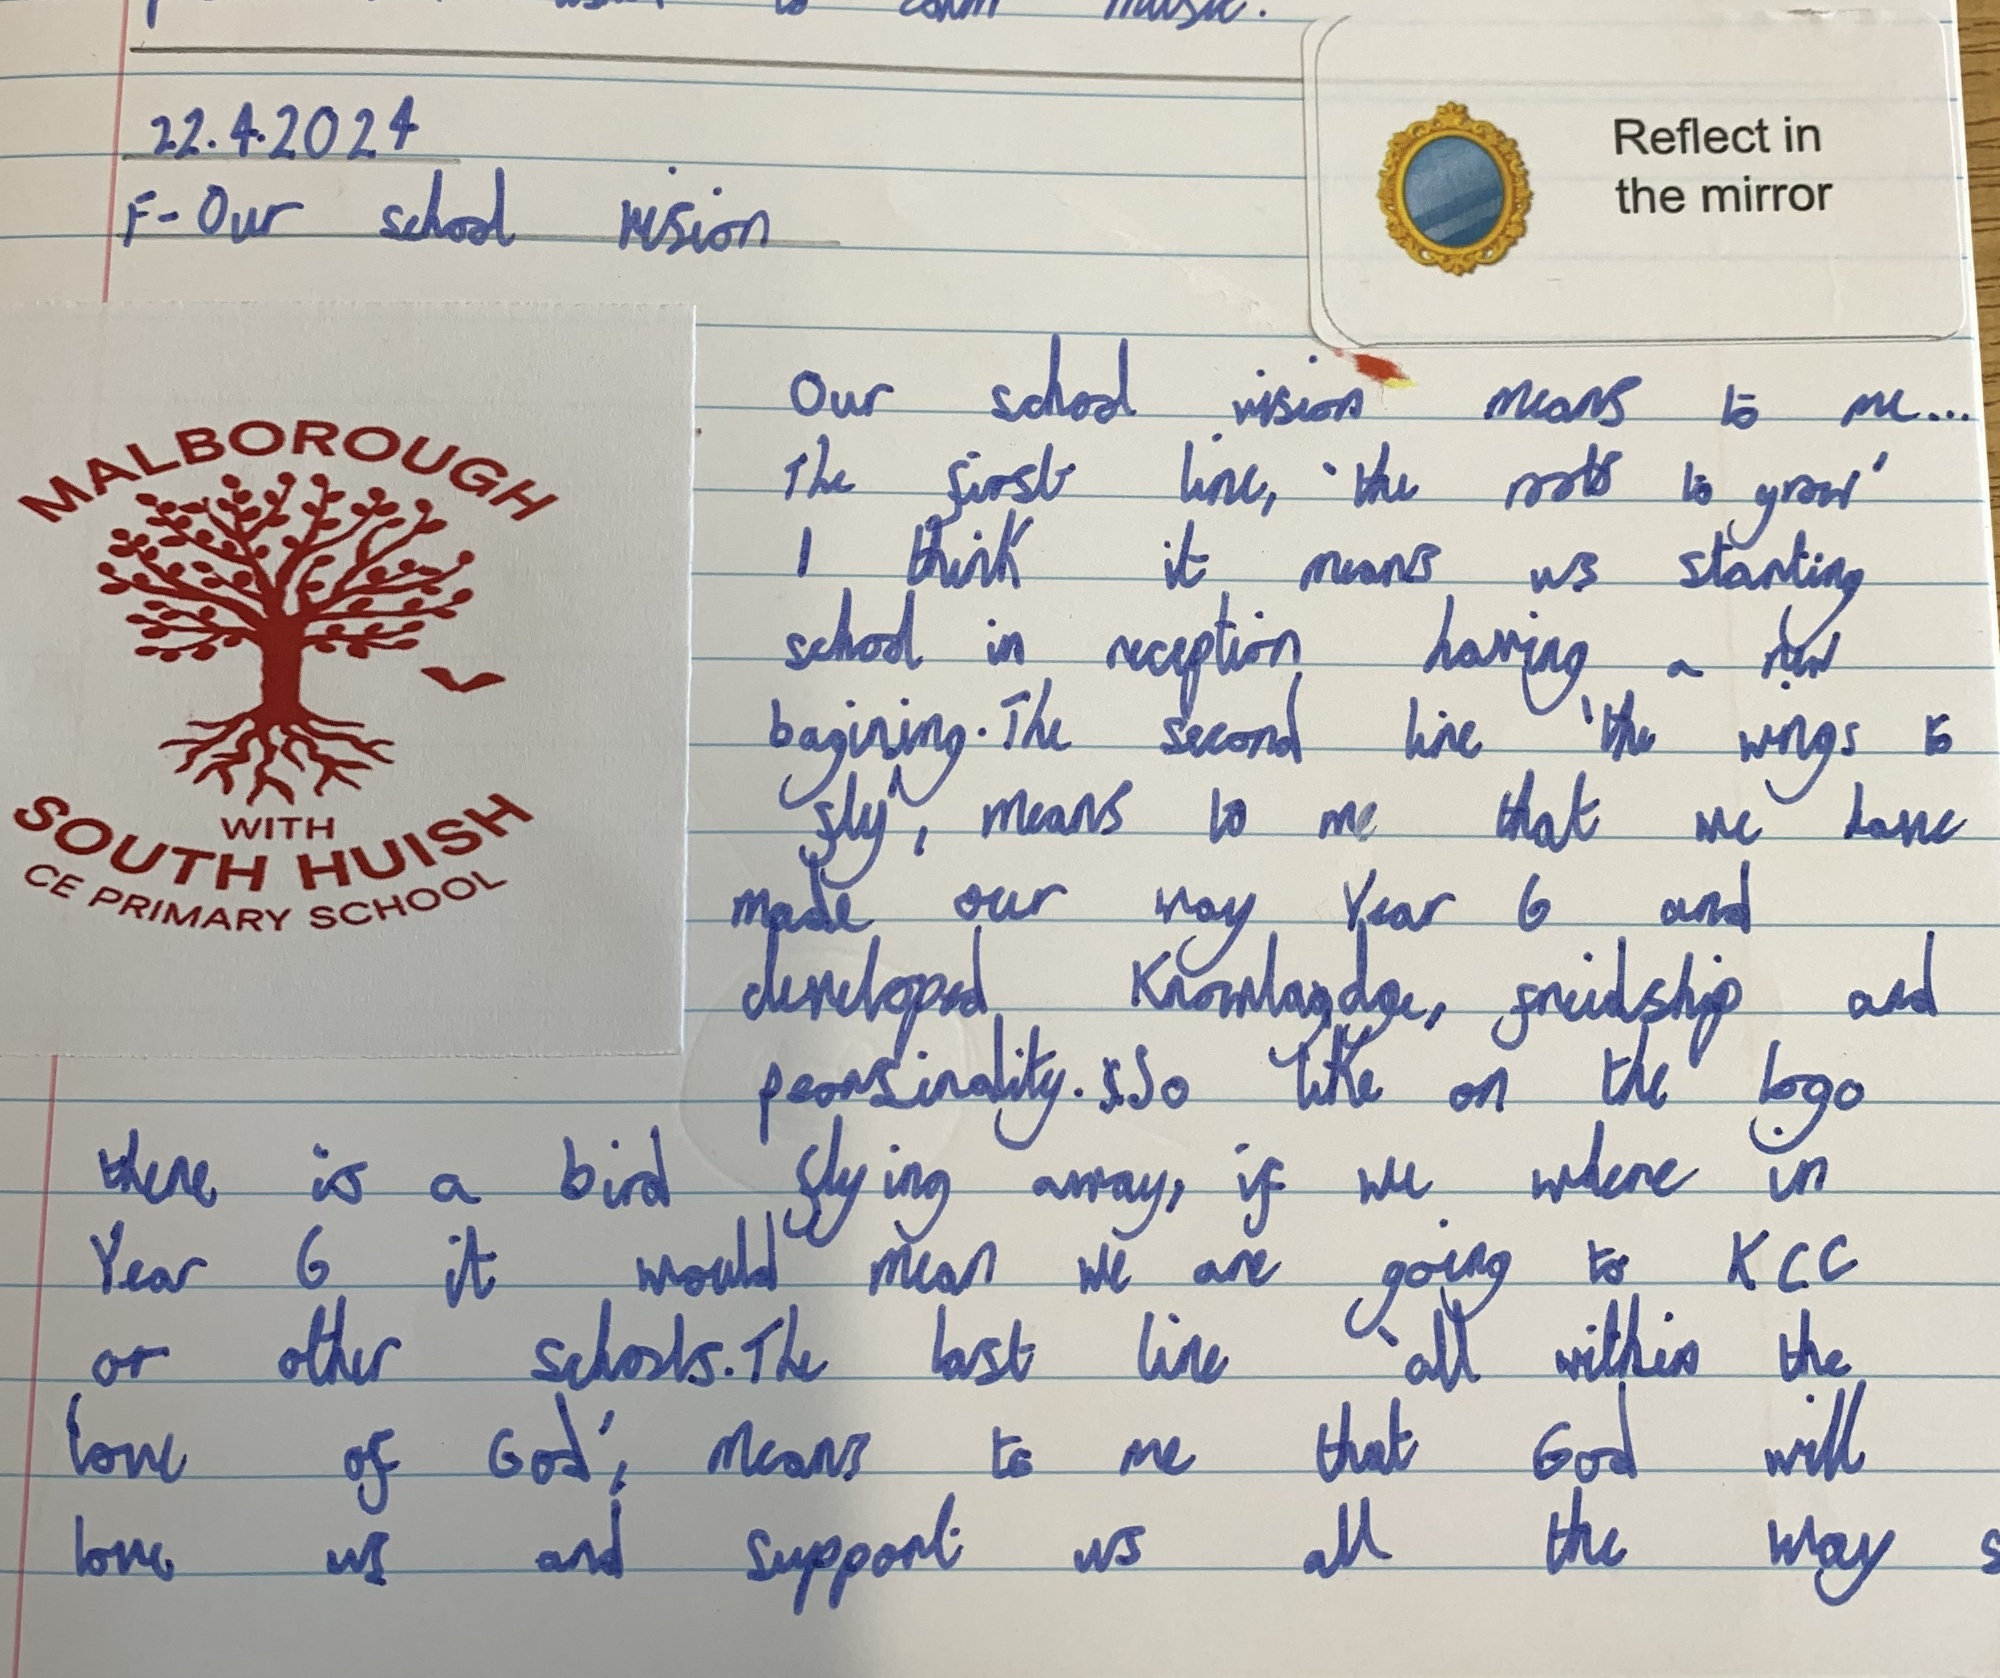 to calm music.
22.4.2024
F-Our school vision
Reflect in
the mirror
MALBOROUGH
WITH
SOUTH HUISH
CE PRIMARY SCHOOL
Our school vision means to me...
The first line, 'the roots to grow'
I think it means us starting
school in reception having a new
bagining. The second line 'the wings to
fly', means to me that we have
made our way Year 6 and
developed Knowlagdge, freidship and
pearsinality. So like on the logo
there is a bird flying away, if we where in
Year 6 it would mean we are going to KCC
or other schools. The last line 'all within the
love of God', means to me that God will
love us and support us all the way